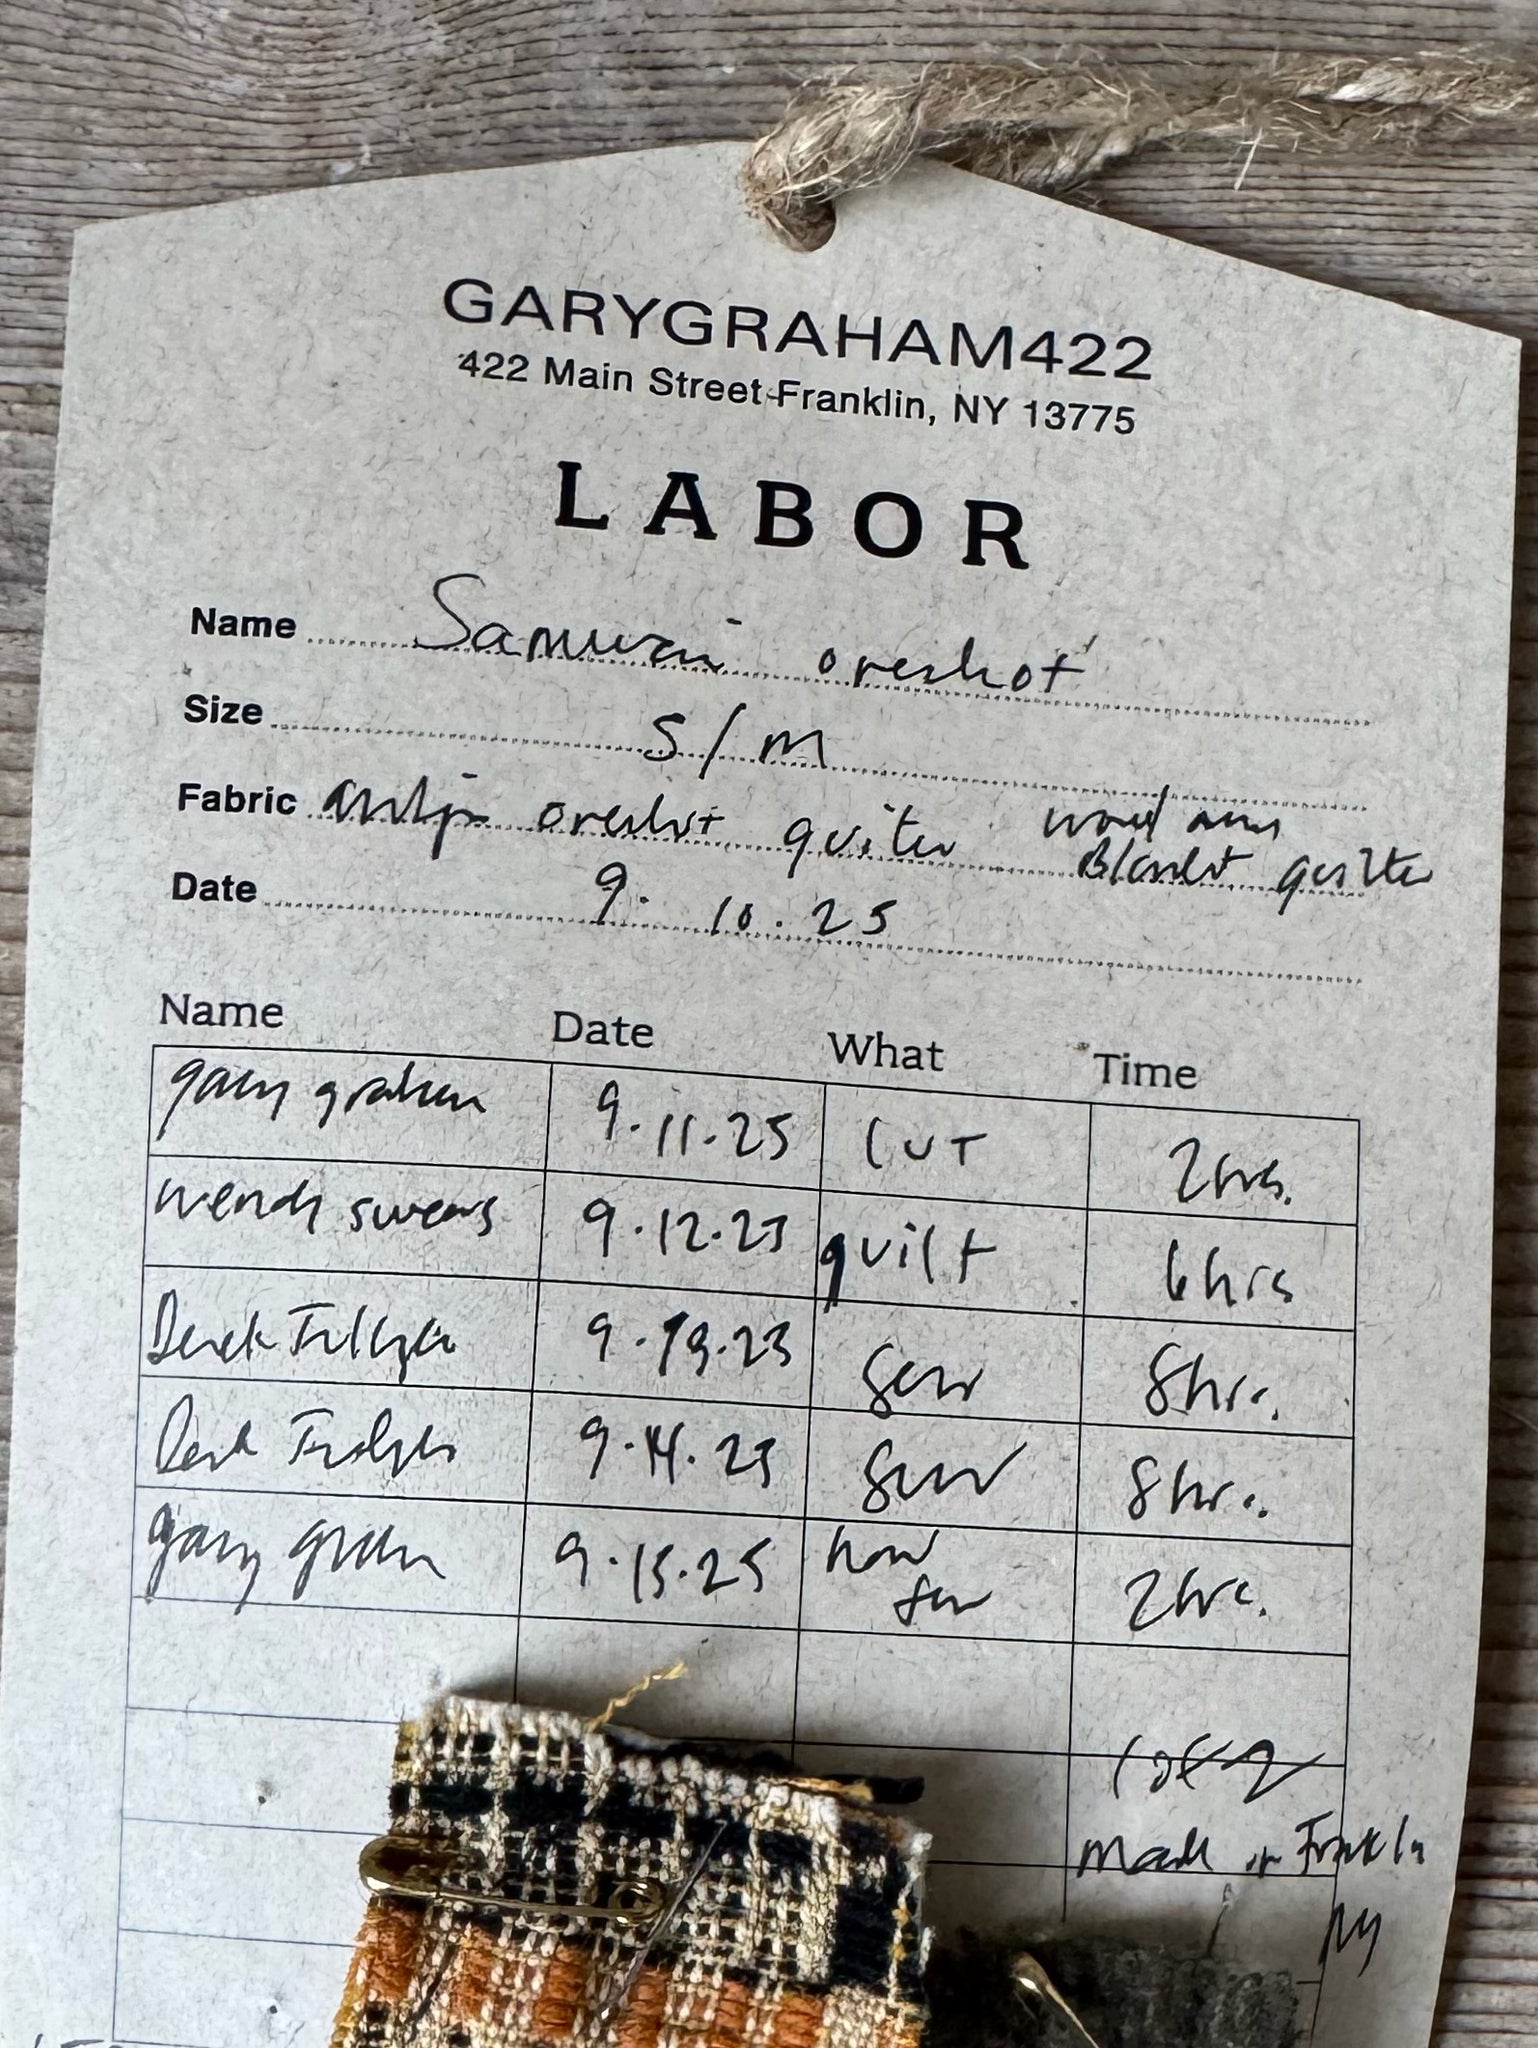 GARYGRAHAM422
422 Main Street Franklin, NY 13775
LABOR
Name Samurai overshot
Size S/M
Fabric overshot quilted
Blanket quilted
Date 9.10.25
Name Date What Time
gary graham 9.11.25 CUT 2hrs.
wendy 9.12.25 quilt 6hrs
Derek 9.13.25 sew 8hrs.
Derek 9.14.25 sew 8hrs.
gary graham 9.15.25 hand sew 2hrs.
1 of
made in Franklin
NY